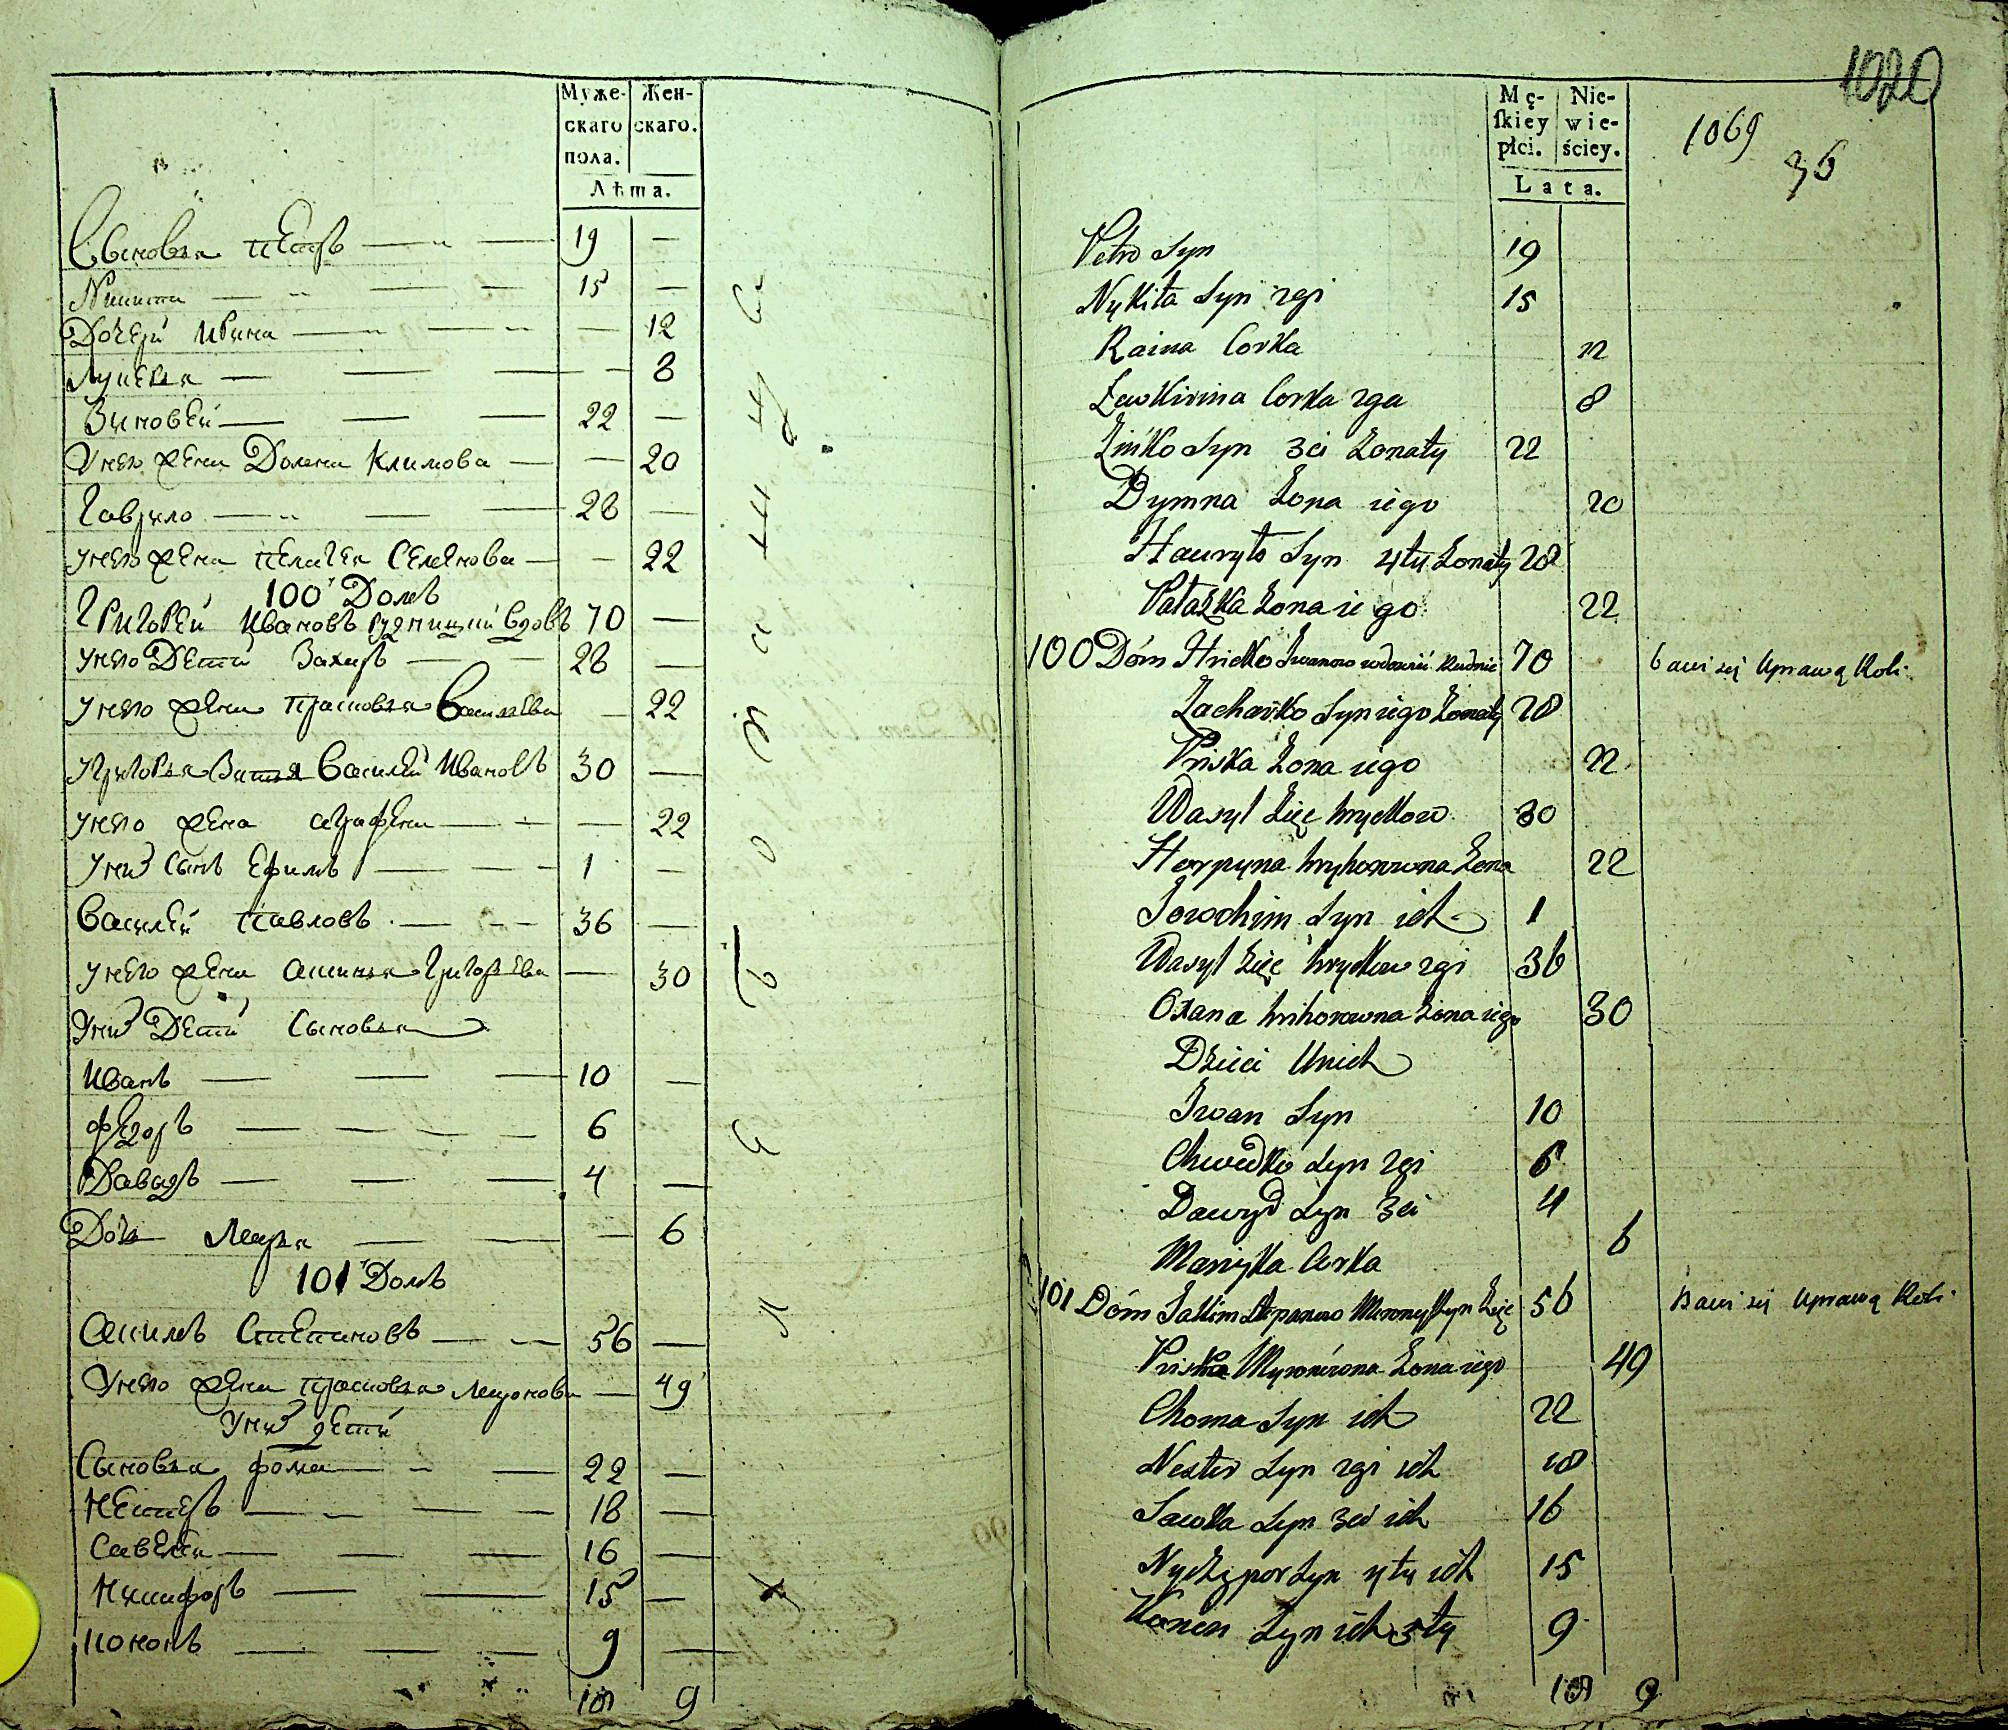 Муже- Жен-
скаго скаго.
пола.
Лѣта.
Сыновья Петръ 19 —
Никита 15 —
Дочери Ирина — 12
Лукерья — 8
Зиновей 22 —
У него жена Домна Климова — 20
Гаврило 28 —
У него жена Пелагея Семенова — 22
100 Домъ
Григорей Ивановъ вдовъ 70 —
У него дети Захаръ 28 —
У него жена Прасковья Васильева — 22
У Григорья зятья Василей Ивановъ 30 —
У него жена Аграфена — 22
У них сынъ Ефимъ 1 —
Василей Павловъ 36 —
У него жена Аксинья Григорьева — 30
У них дети сыновья
Иванъ 10 —
Федоръ 6
Давыдъ 4 —
Дочь Марья — 6
101 Домъ
Акимъ Степановъ 56 —
У него жена Прасковья Миронова — 49
У них дети
Сыновья Фома 22 —
Нестеръ 18 —
Савелей 16 —
Никифоръ 15 —
Кононъ 9 —
18 9
1020
1069
36
Mę- Nie-
skiey wie-
płci. ściey.
Lata.
Petro Syn 19
Nykita Syn 2gi 15
Raina Corka 12
Łewkirina Corka 2ga 8
Zinko Syn 3ci Zonaty 22
Dymna Zona iego 20
Hawryło Syn 4ty Zonaty 28
Pałażka Zona iego 22
100 Dóm Hricko Iwanow wdowiec 70 bawi się Uprawą Roli
Zacharko Syn iego Zonaty 28
Priska Zona iego 22
Wasyl Zięć hryckow 30
Horpyna hryhorowna Zona 22
Jowchim Syn ich 1
Wasyl Zięć hryckow 2gi 36
Oxana hrihorowna Zona iego 30
Dzieci Unich
Iwan Syn 10
Chwedko Syn 2gi 6
Dawyd Syn 3ci 4
Maryjka Corka 6
101 Dóm Jakim Stepanow Zięć 56 Bawi się Uprawą Roli
Priska Myronowna Zona iego 49
Choma Syn ich 22
Nester Syn 2gi ich 18
Sawka Syn 3ci ich 16
Nyczypor Syn 4ty ich 15
Konon Syn ich 5ty 9
18 9